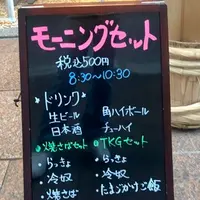 モーニングセット
税込500円
8:30〜10:30
*ドリンク*
生ビール ・角ハイボール
日本酒 ・チューハイ
*焼きそばセット *TKGセット
・らっきょ ・らっきょ
・冷奴 ・冷奴
・焼きそば ・たまごかけご飯